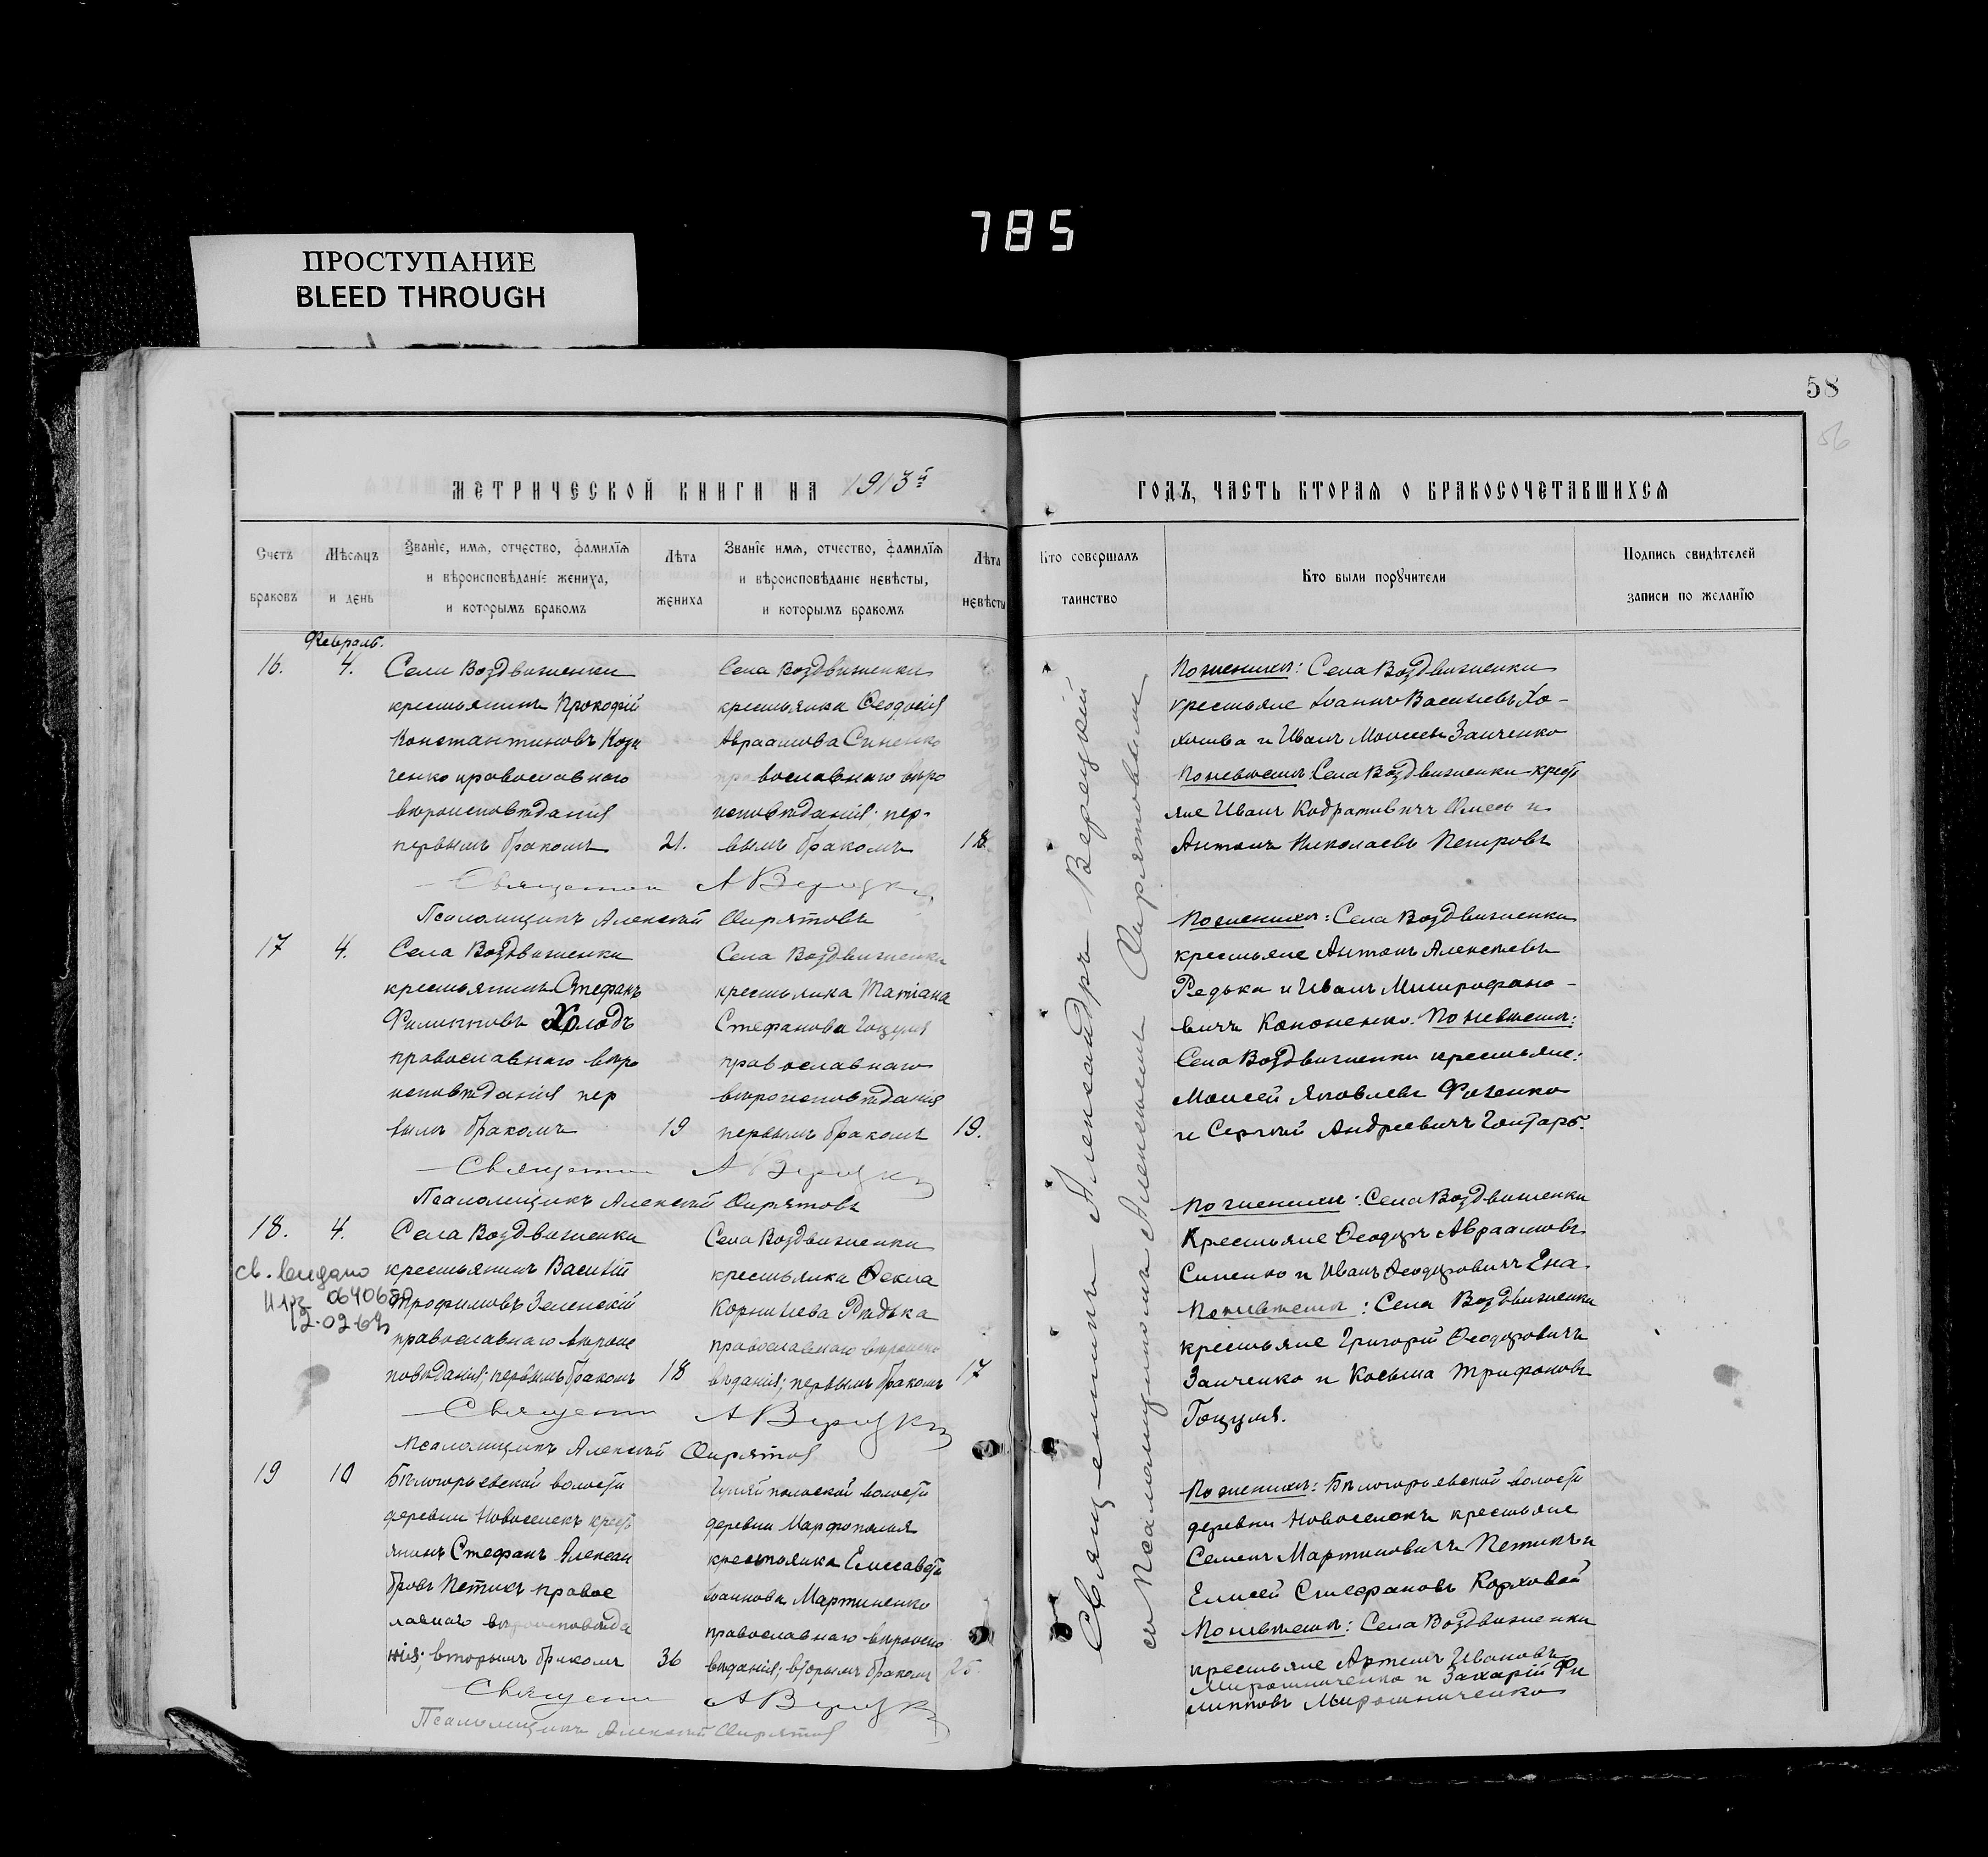 785
ПРОСТУПАНИЕ
BLEED THROUGH
58
56
МЕТРИЧЕСКОЙ КНИГИ НА 1913й
ГОДЪ, ЧАСТЬ ВТОРАЯ О БРАКОСОЧЕТАВШИХСЯ
Счетъ браковъ
Мѣсяцъ и день
Званіе, имя, отчество, фамилія
и вѣроисповѣданіе жениха,
и которымъ бракомъ
Лѣта жениха
Званіе имя, отчество, фамилія
и вѣроисповѣданіе невѣсты,
и которымъ бракомъ
Лѣта невѣсты
Кто совершалъ таинство
Кто были поручители
Подпись свидѣтелей
записи по желанію
Февраль.
16. 4.
Села Воздвиженки
крестьянинъ Прокофій
Константиновъ Коза
ченко православнаго
вѣроисповѣданія
первымъ бракомъ 21.
Села Воздвиженки
крестьянка Ѳеодосія
Авраамова Синенко
православнаго вѣро
исповѣданія; пер-
вымъ бракомъ 18
Священник А Верецкій
Псаломщикъ Алексій Опрятовъ
По женихѣ: Села Воздвиженки
крестьяне Іоаннъ Васильевъ Хо-
и Иванъ Моисеевъ Заиченко
По невѣстѣ: Села Воздвиженки крест
яне Иванъ Кодратовичъ и
Антонъ Николаевъ Петровъ
17 4.
Села Воздвиженки
крестьянинъ Стефанъ
Филипповъ Холодъ
православнаго вѣро
исповѣданія пер
вымъ бракомъ 19
Села Воздвиженки
крестьянка Татіана
Стефанова Гоцуля
православнаго
вѣроисповѣданія
первымъ бракомъ 19.
Священник А Верецкій
Псаломщикъ Алексій Опрятовъ
По женихѣ: Села Воздвиженки
крестьяне Антонъ Алексѣевъ
Редька и Иванъ Митрофано-
вичъ Кононенко. По невѣстѣ:
Села Воздвиженки крестьяне:
Моисей Яковлевъ
и Сергѣй Андреевичъ Гонтарь.
18. 4.
св. видано
0640650
12.02.69
Села Воздвиженки
крестьянинъ Василій
Трофимовъ Зеленскій
православнаго вѣроис
повѣданія; первымъ бракомъ 18
Села Воздвиженки
крестьянка Ѳекла
Корнилева Рѣдька
православнаго вѣроиспо
вѣданія; первымъ бракомъ 17
Священник А Верецкій
Псаломщикъ Алексій Опрятов
По женихѣ: Села Воздвиженки
Крестьяне Ѳеодоръ Авраамовъ
Синенко и Иванъ Ѳеодоровичъ Ена.
По невѣстѣ: Села Воздвиженки
крестьяне Григорій Ѳеодоровичъ
Заиченко и Косьма Трифоновъ
Гоцуля.
19 10
Бѣлогорьевской волости
деревни Новоселекъ крест
янинъ Стефанъ Алексан
дровъ Петикъ правос
лавнаго вѣроисповѣда
нія; вторымъ бракомъ 36
Гуляйпольской волости
деревни Марфополья
крестьянка Елисавета
Іоаннова Мартиненко
православнаго вѣроиспо
вѣданія; вторымъ бракомъ 25.
Священник А Верецкій
Псаломщикъ Алексій Опрятов
По женихѣ: Бѣлогорьевской волости
деревни Новоселокъ крестьяне
Семенъ Мартиновичъ Петикъ и
Елисей Стефановъ Корховой
По невѣстѣ: Села Воздвиженки
крестьяне Артемъ Ивановъ
Мирошниченко и Захарій Фи
липповъ Мирошниченко
Священникъ Александръ Верецкій
съ Псаломщикомъ Алексіемъ Опрятовымъ